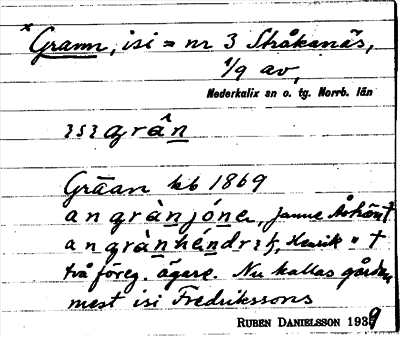 * Grann, isi = nr 3 Stråkanäs,
1/9 av,
Nederkalix sn o. tg. Norrb. län
ɿsɿ grân
Grāan kb 1869
an gràn jóne, Janne †
an gràn héndrɿk, Henrik " †
två föreg. ägere. Nu kallas gården
mest isi Fredrikssons
RUBEN DANIELSSON 1939